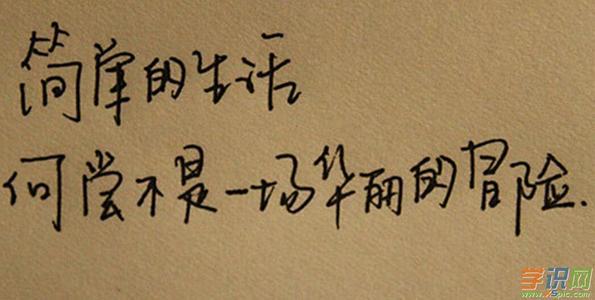 简单的生活
何尝不是一场华丽的冒险.
学识网
www.xspic.com